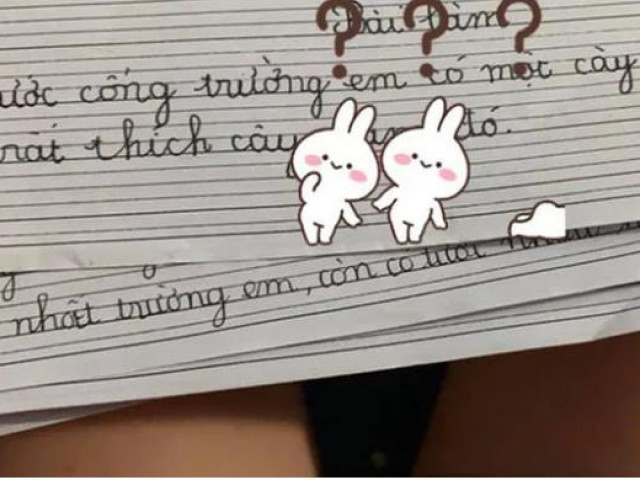 Bài làm
ước cổng trường em có một cây
rất thích cây đó.
nhất trường em, còn có